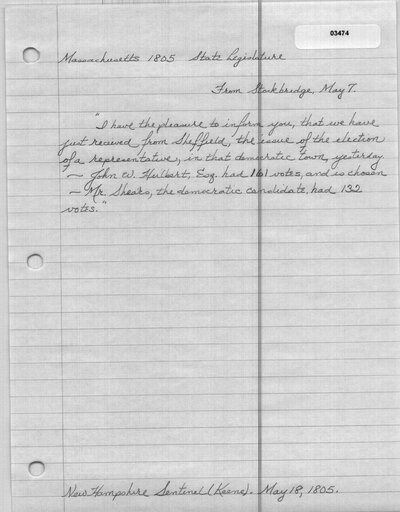 03474
Massachusetts 1805 State Legislature
From Stockbridge, May 7.
"I have the pleasure to inform you, that we have
just received from Sheffield, the issue of the election
of a representative, in that democratic town, yesterday
- John W. Hulbert, Esq. had 161 votes, and is chosen
- Mr. Shears, the democratic candidate, had 132
votes."
New Hampshire Sentinel (Keene). May 18, 1805.